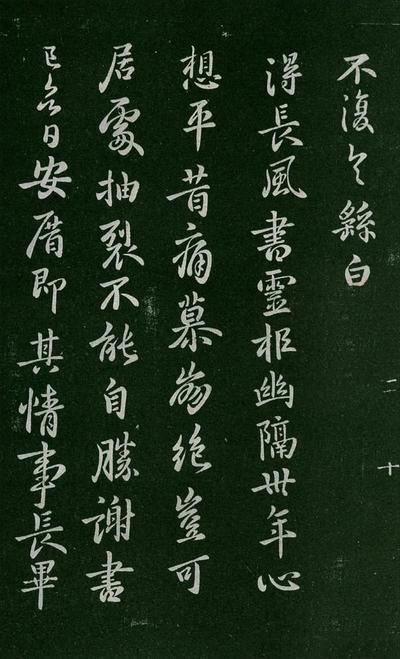 不復 繇白
得長風書靈柩幽隔卅年心
想平昔痛慕崩絕豈可
居處抽裂不能自勝謝書
已 日安厝即其情事長畢
二
十